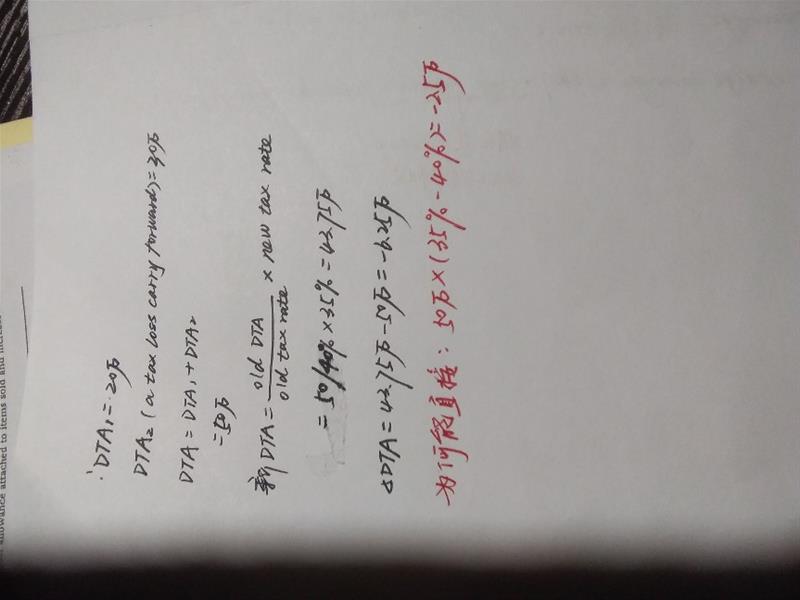 allowance attached to items sold and
DTA₁ = 20万
DTA₂ (a tax loss carry forward) = 30万
DTA = DTA₁ + DTA₂
= 50万
新DTA = old DTA / old tax rate × new tax rate
= 50/40% × 35% = 43.75万
△DTA = 43.75万 - 50万 = -6.25万
为何能直接: 50万 × (35% - 40%) = -2.5万